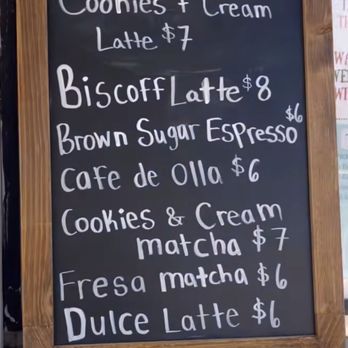 Cookies + Cream
Latte $7
Biscoff Latte $8
Brown Sugar Espresso $6
Cafe de Olla $6
Cookies & Cream
matcha $7
Fresa matcha $6
Dulce Latte $6